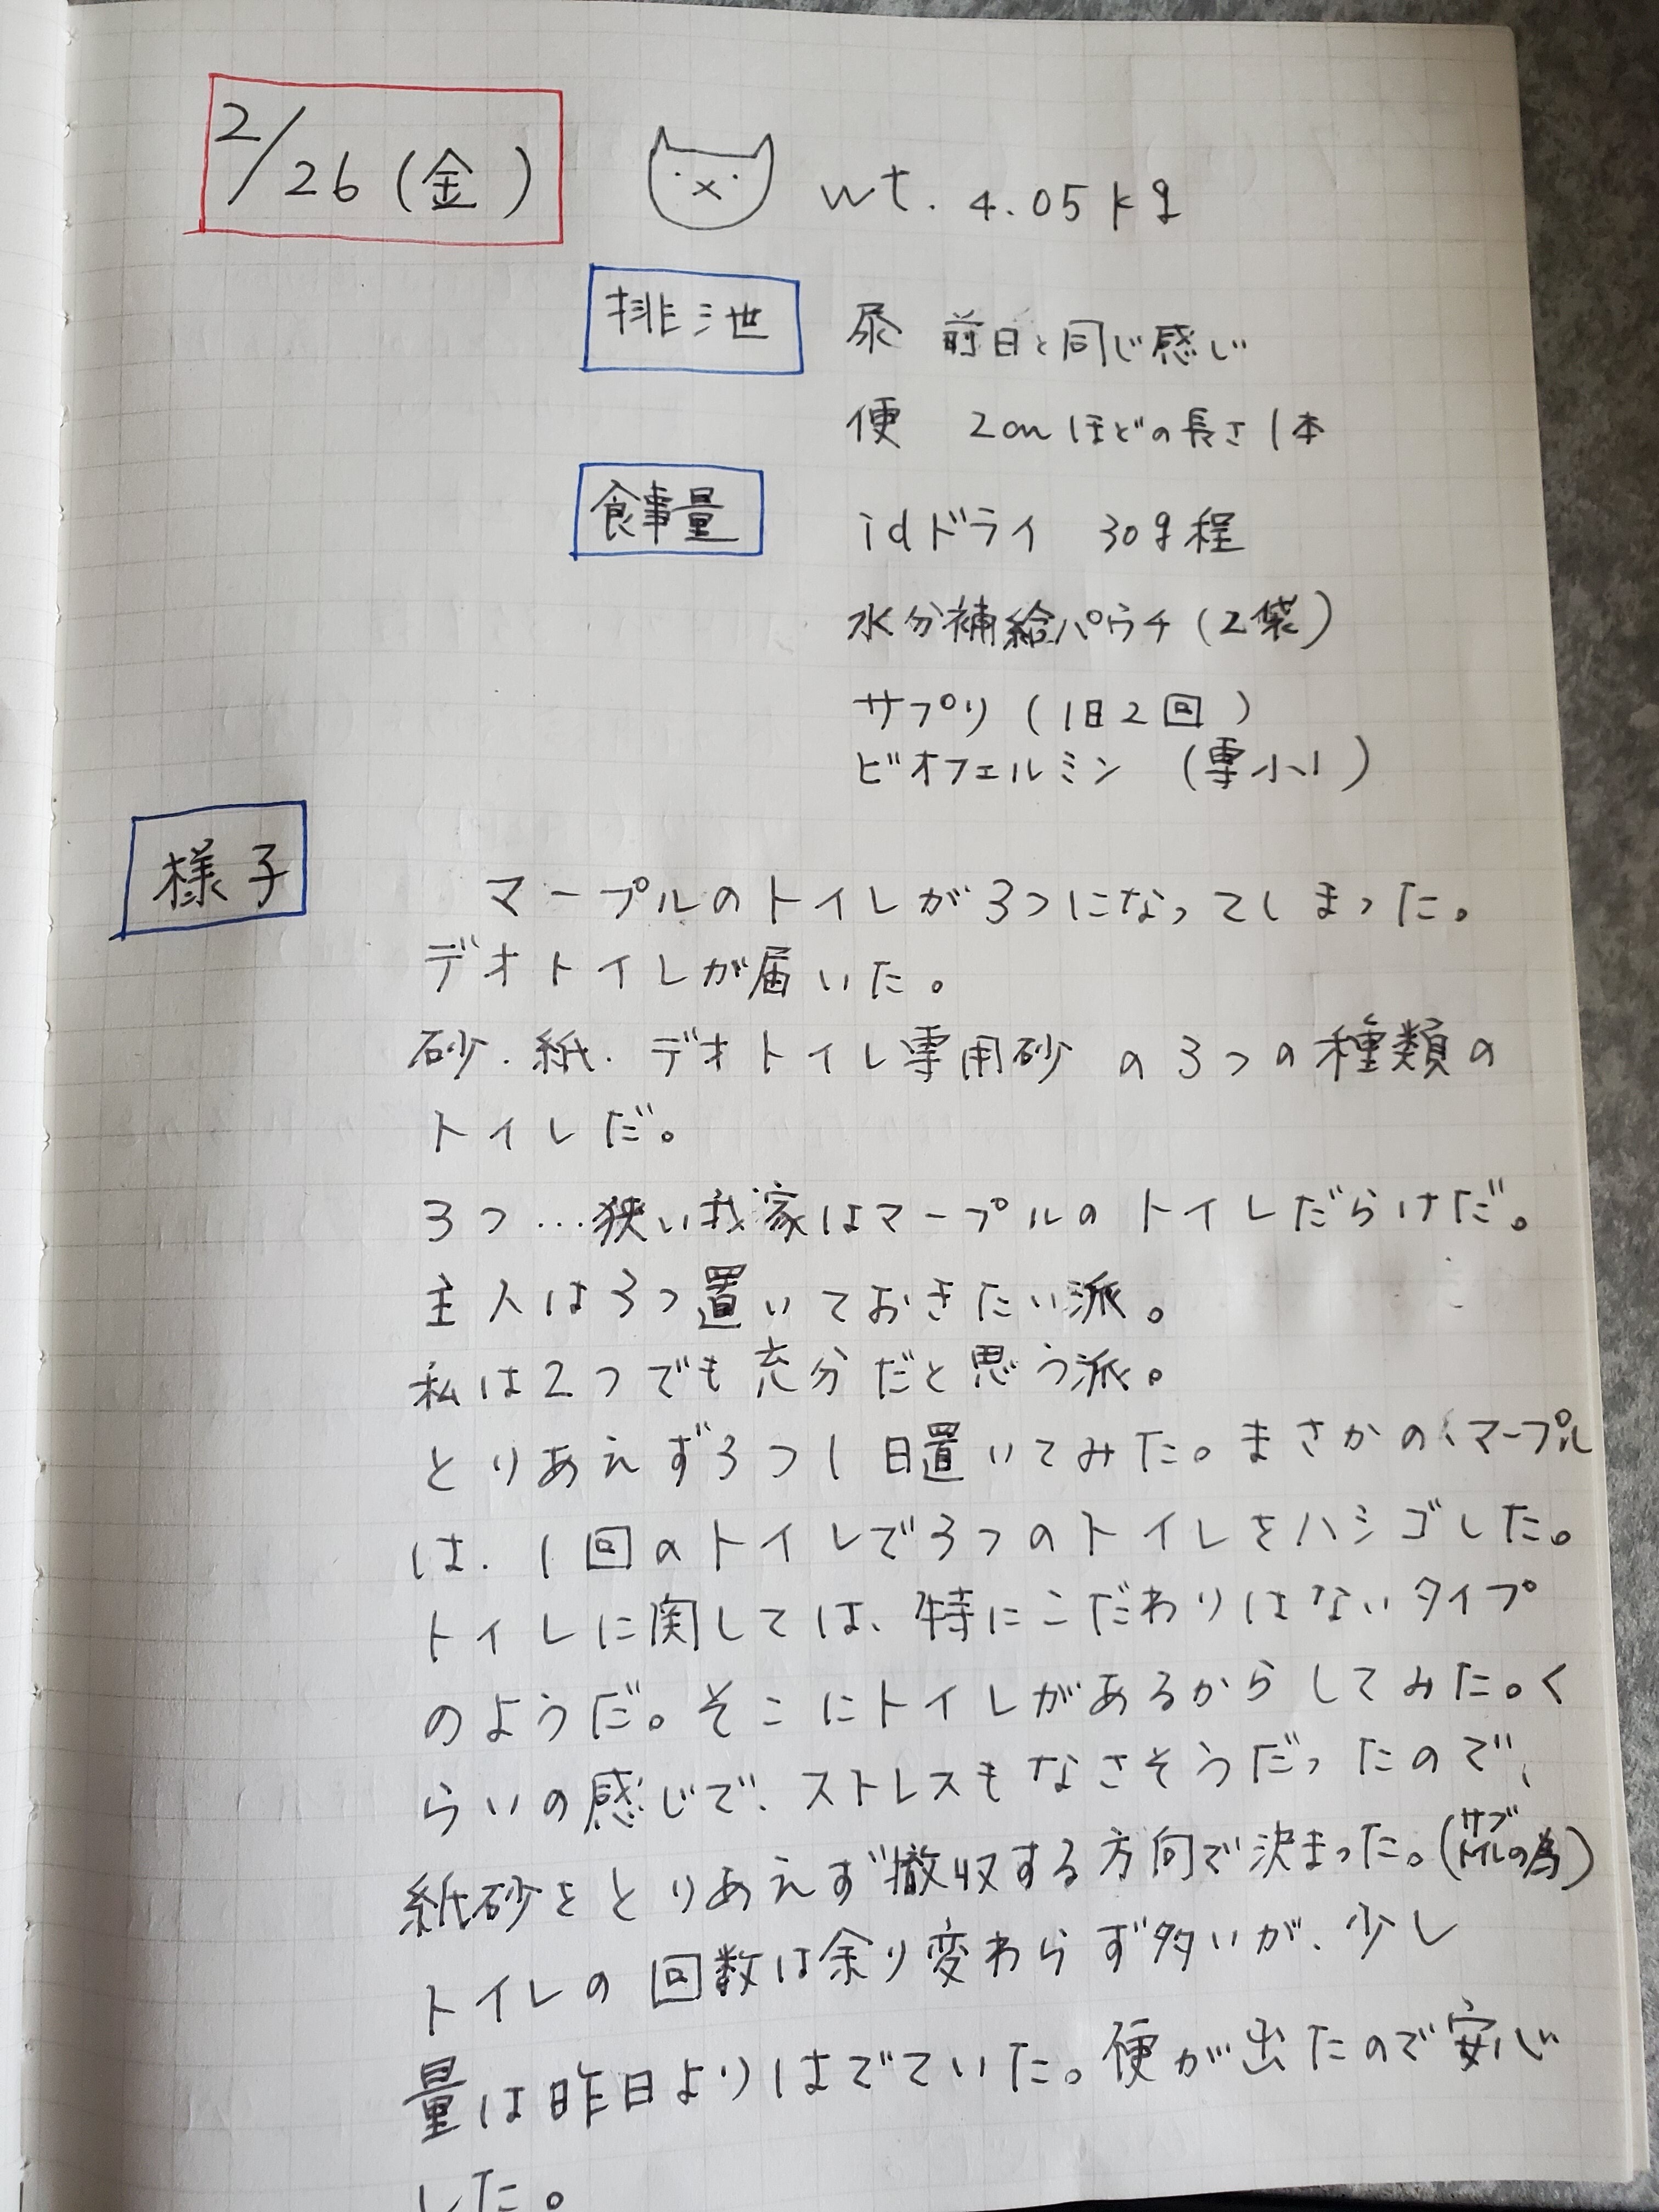 2/26(金) wt. 4.05kg
排泄 尿 前日と同じ感じ
便 2cmほどの長さ1本
食事量 idドライ 30g程
水分補給パウチ(2袋)
サプリ(1日2回)
ビオフェルミン (小1)
様子
マープルのトイレが3つになってしまった。
デオトイレが届いた。
砂・紙・デオトイレ専用砂の3つの種類の
トイレだ。
3つ…狭い我家はマープルのトイレだらけだ。
主人は3つ置いておきたい派。
私は2つでも充分だと思う派。
とりあえず3つ1日置いてみた。まさかの、マープル
は、1回のトイレで3つのトイレをハシゴした。
トイレに関しては、特にこだわりはないタイプ
のようだ。そこにトイレがあるからしてみた。く
らいの感じで、ストレスもなさそうだったので、
紙砂をとりあえず撤収する方向で決まった。(サブトイレの為)
トイレの回数は余り変わらず多いが、少し
量は昨日よりはでていた。便が出たので安心
した。